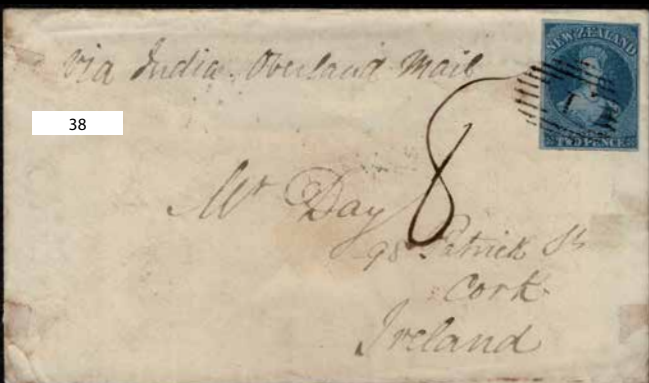 Via India Overland Mail
NEW ZEALAND
TWO PENCE
38
8
Mr Day
98 Patrick St
Cork
Ireland